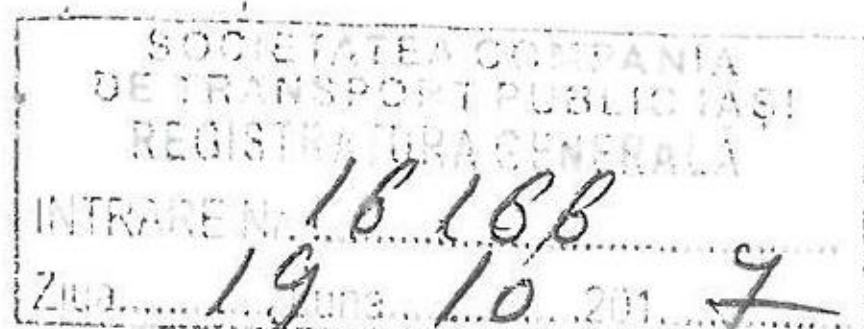 SOCIETATEA COMPANIA
DE TRANSPORT PUBLIC IAȘI
REGISTRATURA GENERALĂ
INTRARE Nr. 16 166
Ziua 19 Luna 10 201 7